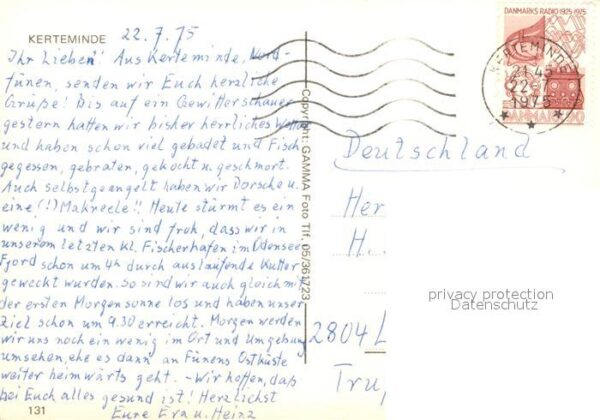 KERTEMINDE
22.7.75
Ihr Lieben! Aus Kerteminde, Nord-
fünen, senden wir Euch herzliche
Grüße! Bis auf ein Gewitterschauer
gestern hatten wir bisher herrliches Wetter
und haben schon viel gebadet und Fisch
gegessen, gebraten, gekocht u. geschmort.
Auch selbstgeangelt haben wir Dorsche u.
eine (!) Makrele!! Heute stürmt es ein
wenig und wir sind froh, dass wir in
unserem letzten kl. Fischerhafen im Odensee
Fjord schon um 4h durch auslaufende Kutter
geweckt wurden. So sind wir auch gleich mit
der ersten Morgensonne los und haben unser
Ziel schon um 9.30 erreicht. Morgen werden
wir uns noch ein wenig im Ort und Umgebung
umsehen, ehe es dann an Fünens Ostküste
weiter heimwärts geht. - Wir hoffen, daß
bei Euch alles gesund ist! Herzlichst
Eure Eva u. Heinz
131
Copyright: GAMMA Foto Tlf. 05/361723
DANMARKS RADIO 1925-1975
DANMARK 90
KERTEMINDE
21-45
22-7
1975
Deutschland
Her
H.
2804 L
Tru
privacy protection
Datenschutz